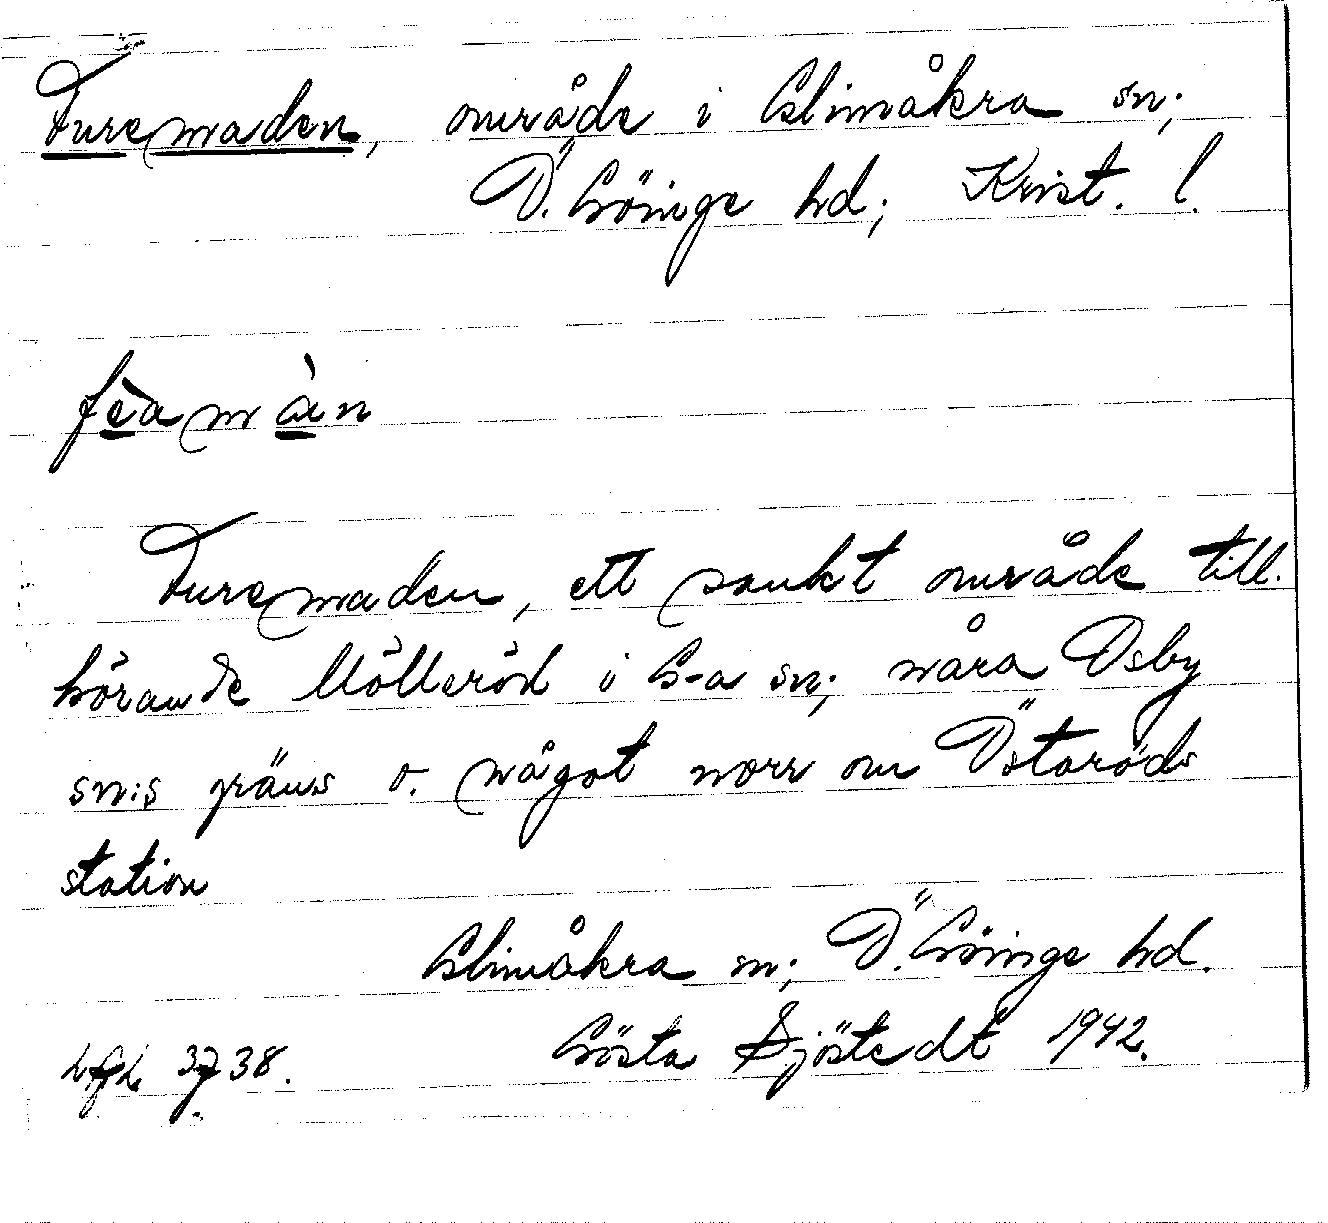 Furemaden, område i Glimåkra sn;
Ö. Göinge hd; Krist. l.
fèa màn
Furemaden, ett sankt område till-
hörande Mölleröd i G-a sn; nära Osby
sn:s gräns o. något norr om Östaröds
station
Glimåkra sn; Ö. Göinge hd.
Gösta Sjöstedt 1942.
3738.